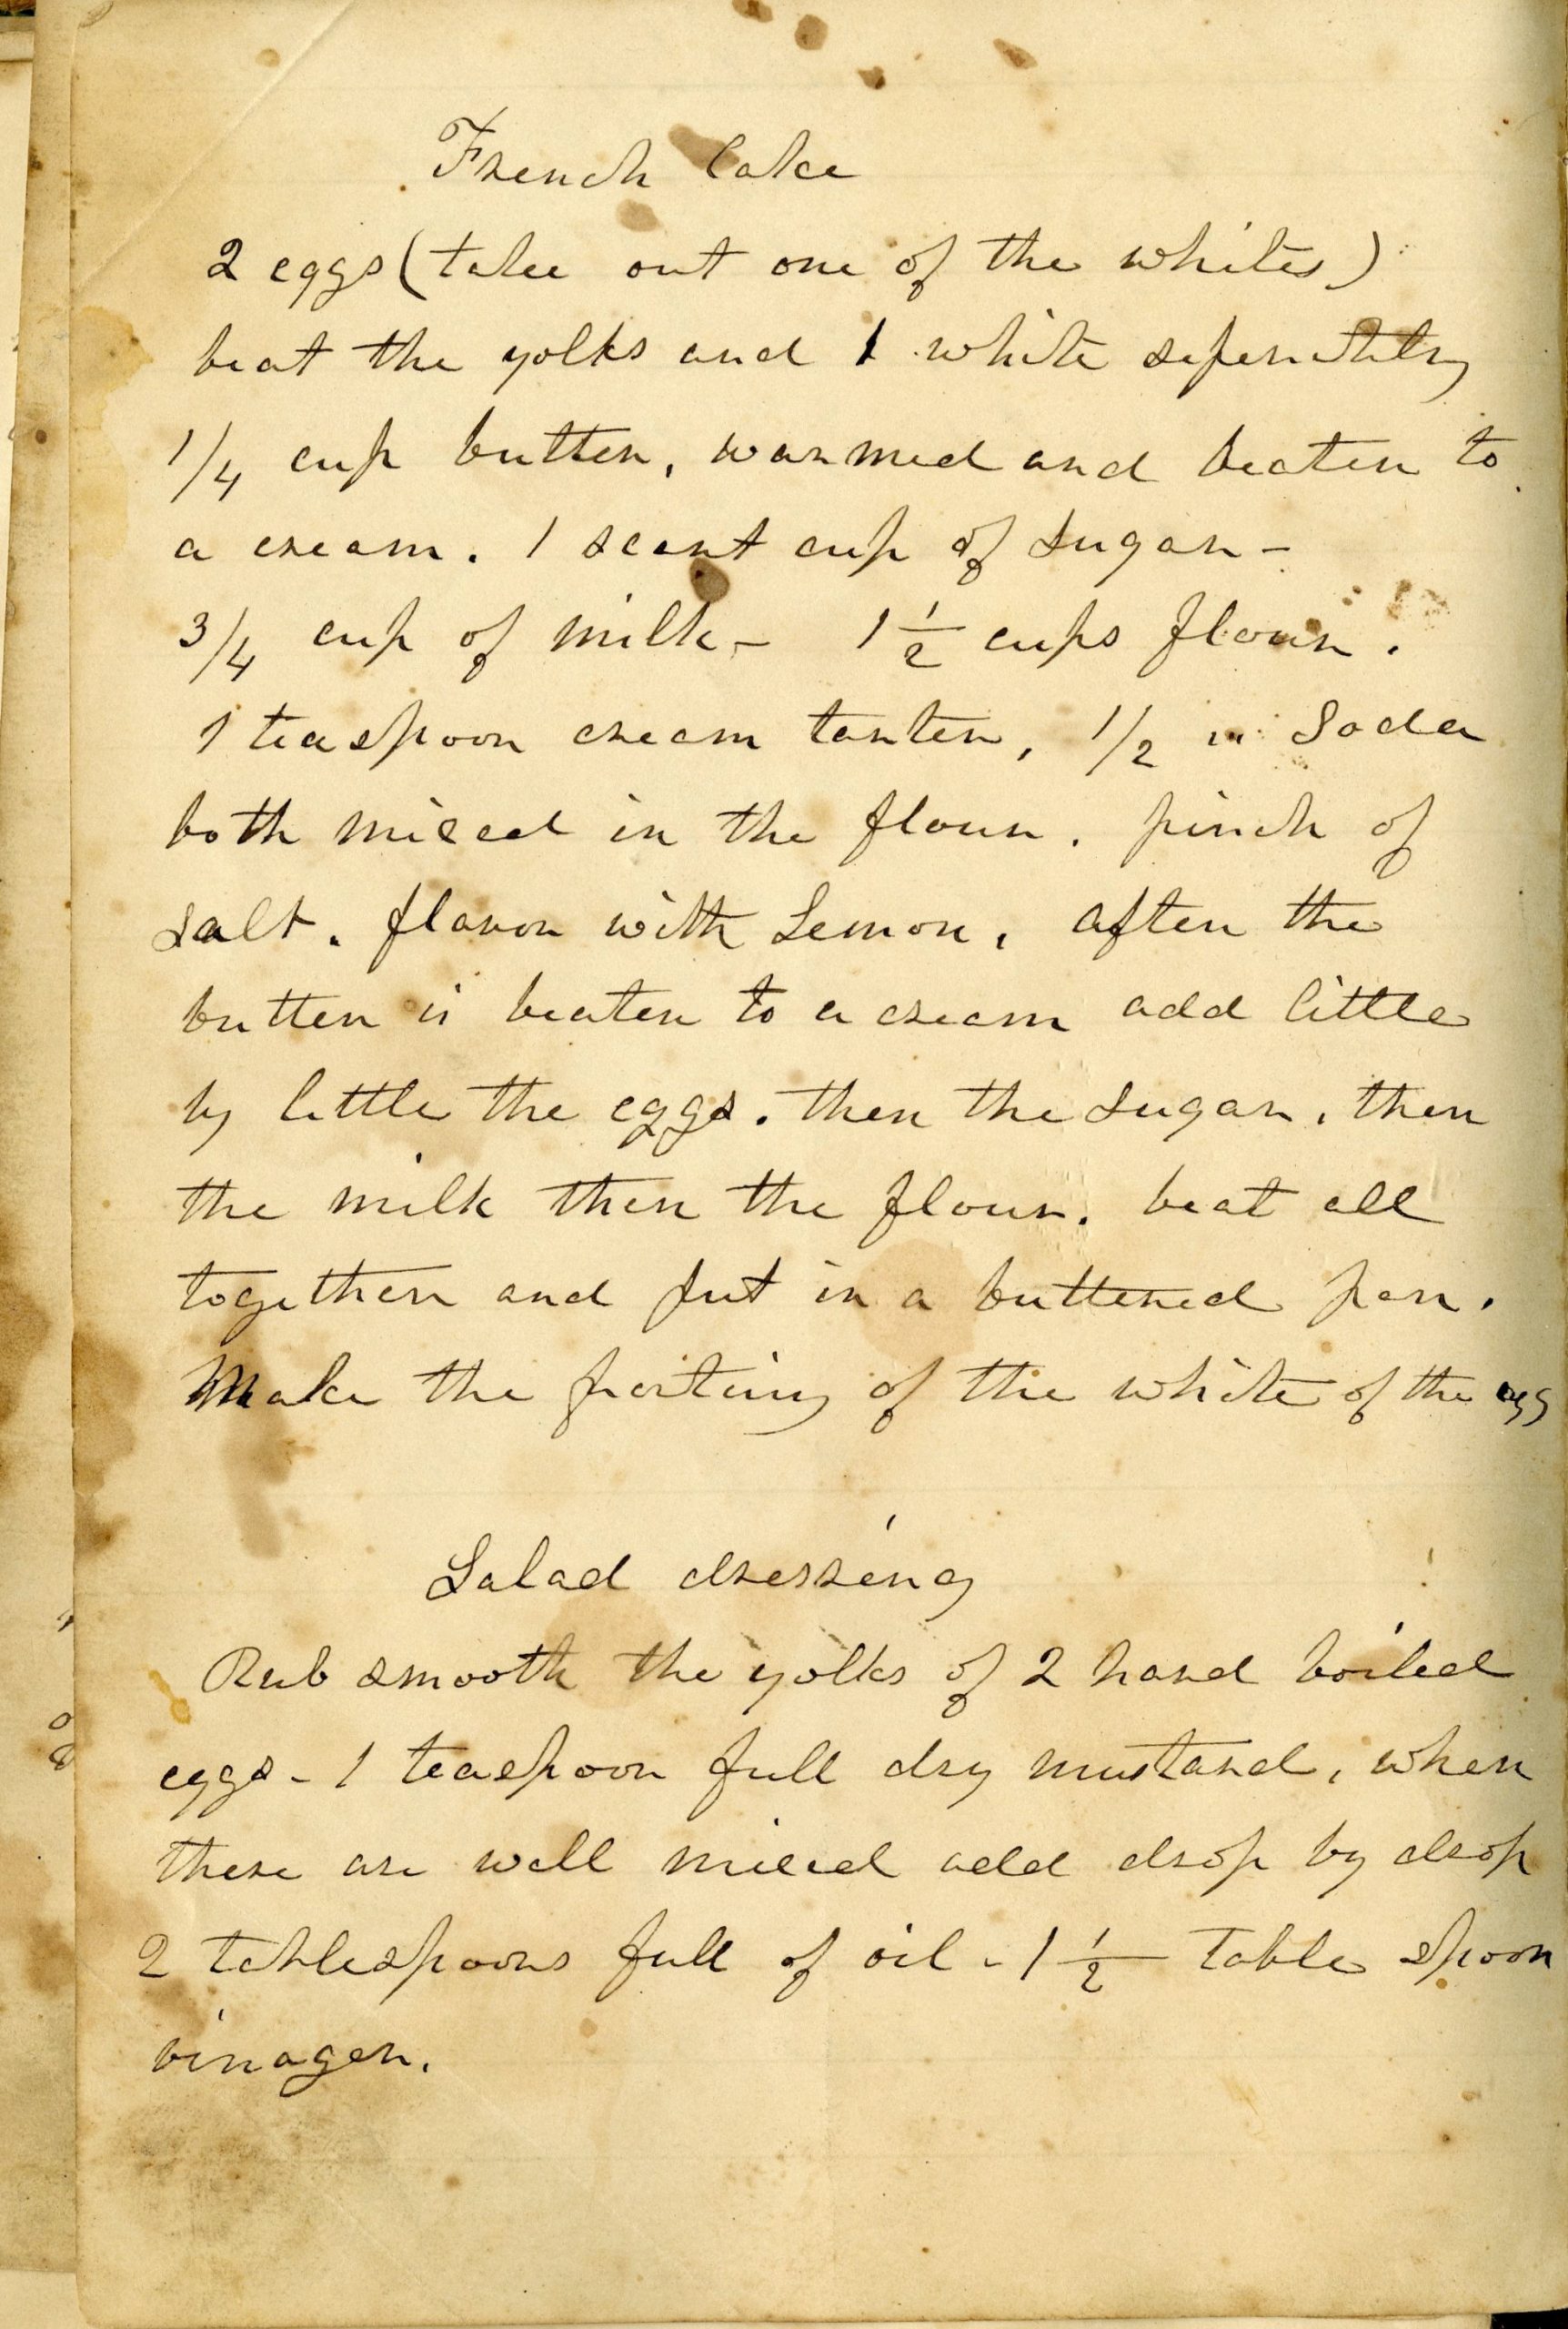 French Cake
2 eggs (take out one of the whites)
beat the yolks and 1 white seperately
1/4 cup butter, warmed and beaten to
a cream. 1 scant cup of sugar -
3/4 cup of milk - 1 1/2 cups flour.
1 teaspoon cream tarter, 1/2 " Soda
both mixed in the flour. pinch of
salt. flavor with Lemon, after the
butter is beaten to a cream add little
by little the eggs. then the sugar, then
the milk then the flour. beat all
together and put in a buttered pan.
Make the frosting of the white of the egg
Salad dressing
Rub smooth the yolks of 2 hard boiled
eggs - 1 teaspoon full dry mustard, when
these are well mixed add drop by drop
2 tablespoons full of oil - 1 1/2 table spoon
vinager.